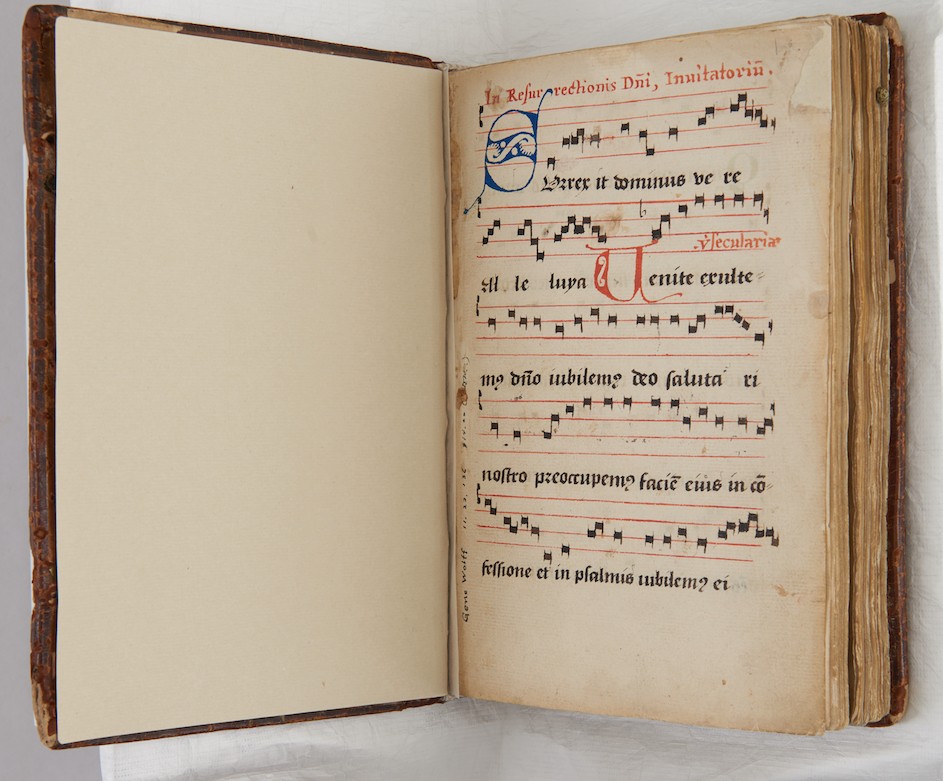 In Resurrectionis Dñi, Inuitatoriū.
SVrrex it dominus ve re
℣secularia
Al le luya Uenite exulte⸗
mꝰ dño iubilemꝰ deo saluta ri
nostro preoccupemꝰ faciē eius in cō⸗
fessione et in psalmis iubilemꝰ ei
Gene Wolff